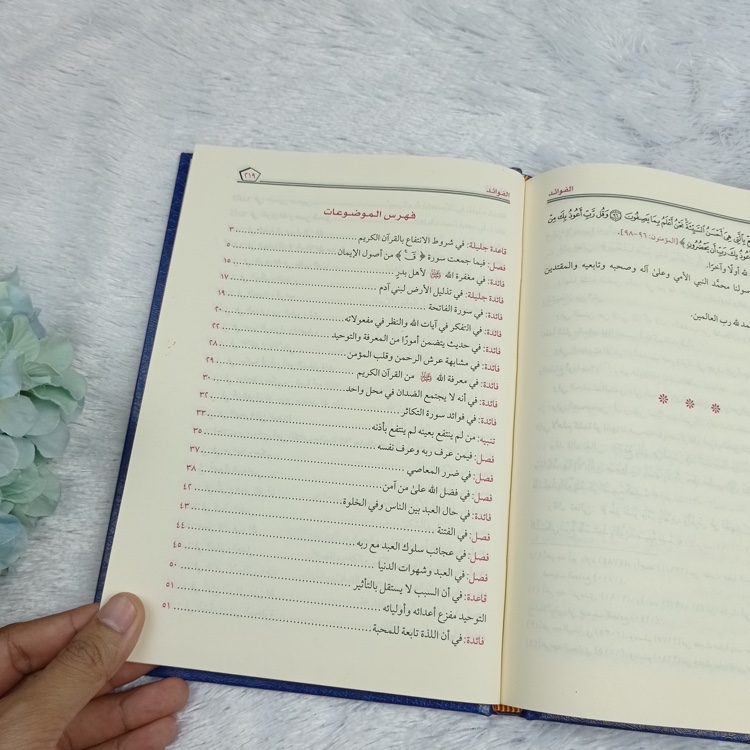 الفوائد
بِٱلَّتِي هِيَ أَحْسَنُ ٱلسَّيِّئَةَ نَحْنُ أَعْلَمُ بِمَا يَصِفُونَ ٩٦ وَقُل رَّبِّ أَعُوذُ بِكَ مِنْ
وَأَعُوذُ بِكَ رَبِّ أَن يَحْضُرُونِ﴾ [المؤمنون: ٩٦-٩٨].
لله أولًا وآخرًا.
محمَّد النبي الأمي وعلىٰ آله وصحبه وتابعيه والمقتدين
لله رب العالمين.
الفوائد ٢١٩
فهرس الموضوعات
قاعدة جليلة: في شروط الانتفاع بالقرآن الكريم ٣
فصل: فيما جمعت سورة ﴿قٓ﴾ من أصول الإيمان ٥
فائدة: في مغفرة الله ﷻ لأهل بدرٍ ١٥
فائدة جليلة: في تذليل الأرض لبني آدم ١٧
فائدة: في سورة الفاتحة ١٩
فائدة: في التفكر في آيات الله والنظر في مفعولاته ٢٠
فائدة: في حديث يتضمن أمورًا من المعرفة والتوحيد ٢٢
فائدة: في مشابهة عرش الرحمن وقلب المؤمن ٢٨
فائدة: في معرفة الله ﷻ من القرآن الكريم ٢٩
فائدة: في أنه لا يجتمع الضدان في محل واحد ٣٠
فائدة: في فوائد سورة التكاثر ٣٢
تنبيه: من لم ينتفع بعينه لم ينتفع بأذنه ٣٣
فصل: فيمن عرف ربه وعرف نفسه ٣٥
فصل: في ضرر المعاصي ٣٧
فصل: في فضل الله علىٰ من آمن ٣٨
فائدة: في حال العبد بين الناس وفي الخلوة ٤٢
فصل: في الفتنة ٤٣
فصل: في عجائب سلوك العبد مع ربه ٤٤
فصل: في العبد وشهوات الدنيا ٤٥
قاعدة: في أن السبب لا يستقل بالتأثير ٥٠
التوحيد مفزع أعدائه وأوليائه ٥١
فائدة: في أن اللذة تابعة للمحبة ٥١